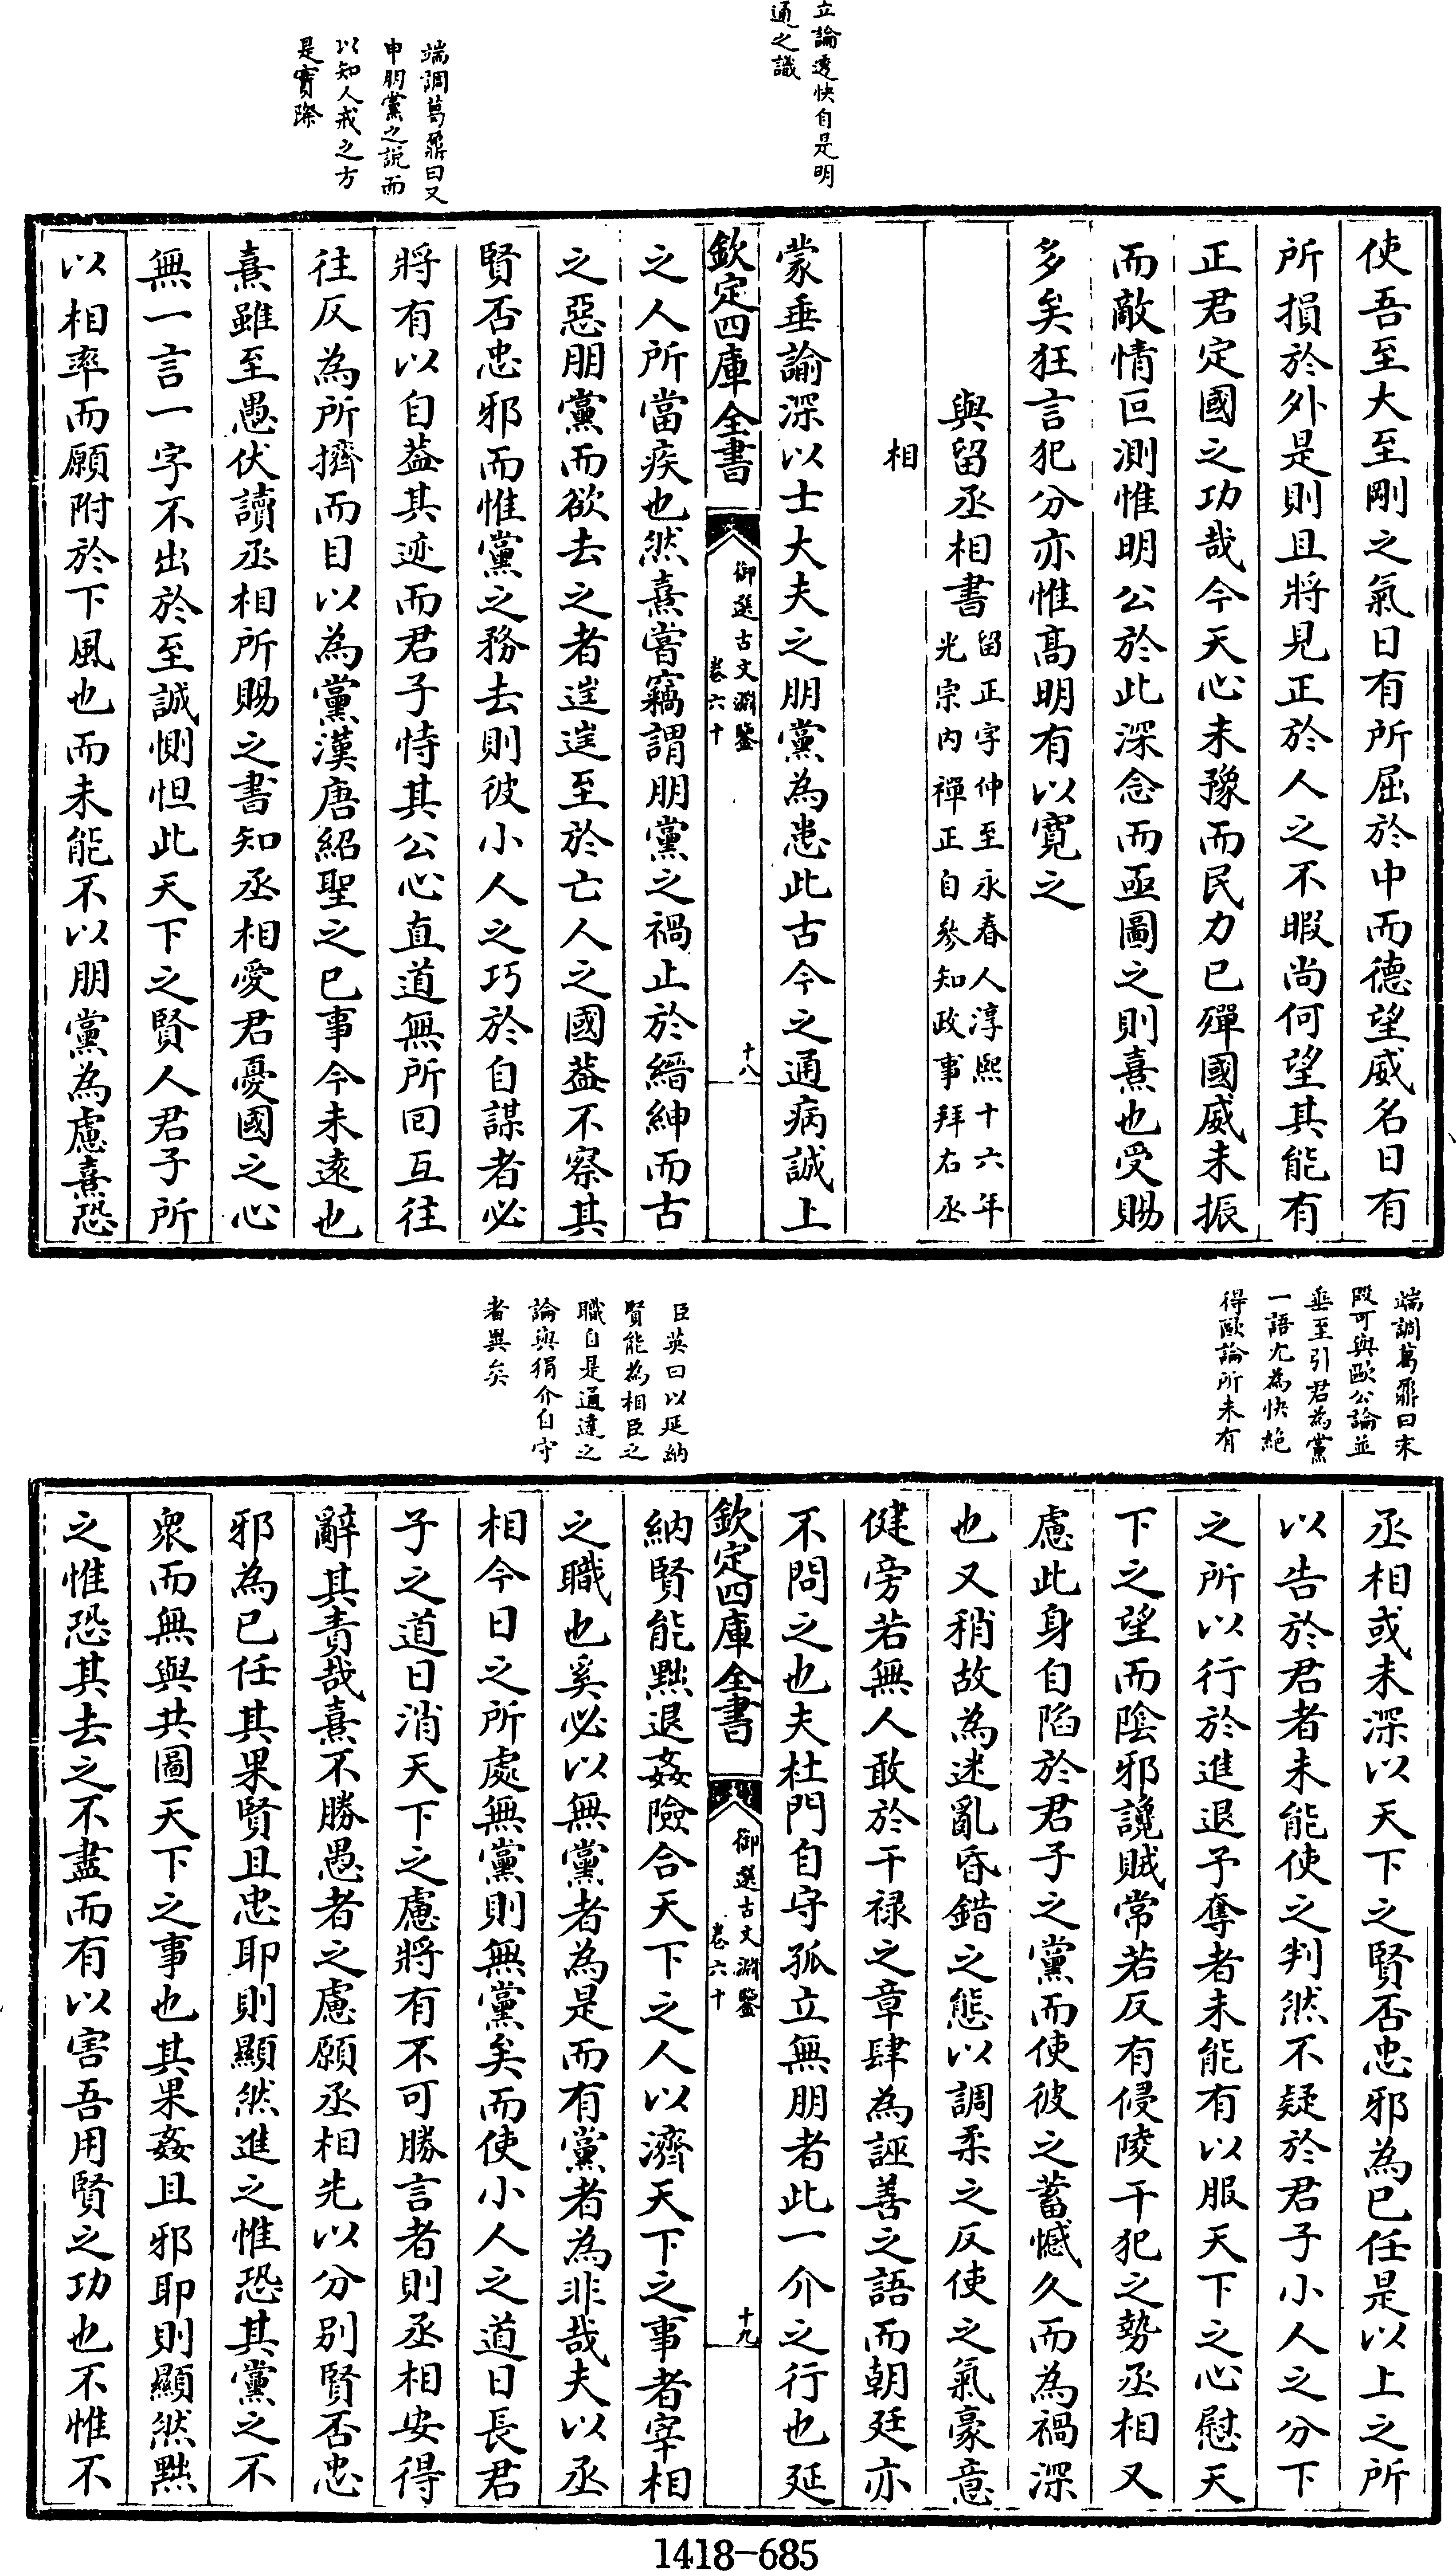 立論透快自是明
通之識
端調葛鼐曰又
申朋黨之說而
以知人戒之方
是實際
使吾至大至剛之氣日有所屈於中而德望威名日有
所損於外是則且將見正於人之不暇尚何望其能有
正君定國之功哉今天心未豫而民力已殫國威未振
而敵情叵測惟明公於此深念而亟圖之則熹也受賜
多矣狂言犯分亦惟髙明有以寛之
與留丞相書留正字仲至永春人淳熙十六年
光宗内禪正自參知政事拜右丞
相
蒙垂諭深以士大夫之朋黨為患此古今之通病誠上
欽定四庫全書
御選古文淵鑒
卷六十
十八
之人所當疾也然熹嘗竊謂朋黨之禍止於縉紳而古
之惡朋黨而欲去之者迬迬至於亡人之國葢不察其
賢否忠邪而惟黨之務去則彼小人之巧於自謀者必
將有以自葢其迹而君子恃其公心直道無所回互往
往反為所擠而目以為黨漢唐紹聖之已事今未逺也
熹雖至愚伏讀丞相所賜之書知丞相愛君憂國之心
無一言一字不出於至誠惻怛此天下之賢人君子所
以相率而願附於下風也而未能不以朋黨為慮熹恐
端調葛鼐曰末
段可與歐公論並
垂至引君為黨
一語尤為快絶
得歐論所未有
臣英曰以延納
賢能為相臣之
職自是通達之
論與狷介自守
者異矣
丞相或未深以天下之賢否忠邪為已任是以上之所
以告於君者未能使之判然不疑於君子小人之分下
之所以行於進退予奪者未能有以服天下之心慰天
下之望而陰邪讒賊常若反有侵陵干犯之勢丞相又
慮此身自陷於君子之黨而使彼之蓄憾久而為禍深
也又稍故為迷亂昏錯之態以調柔之反使之氣豪意
健旁若無人敢於干禄之章肆為誣善之語而朝廷亦
不問之也夫杜門自守孤立無朋者此一介之行也延
欽定四庫全書
御選古文淵鑒
卷六十
十九
納賢能黜退姦險合天下之人以濟天下之事者宰相
之職也奚必以無黨者為是而有黨者為非哉夫以丞
相今日之所處無黨則無黨矣而使小人之道日長君
子之道日消天下之慮將有不可勝言者則丞相安得
辭其責哉熹不勝愚者之慮願丞相先以分别賢否忠
邪為已任其果賢且忠耶則顯然進之惟恐其黨之不
衆而無與共圖天下之事也其果姦且邪耶則顯然黜
之惟恐其去之不盡而有以害吾用賢之功也不惟不
1418-685